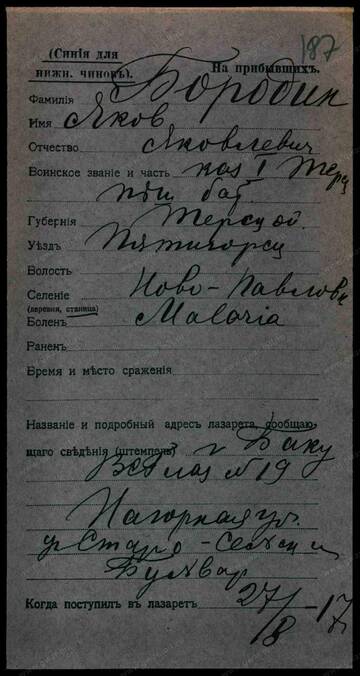 187
(Синія для
нижн. чиновъ).
На прибывшихъ.
Фамилія Бородин
Имя Яков
Отчество Яковлевич
Воинское званіе и часть каз I Терс
пеш. бат.
Губернія Терск об.
Уѣздъ Пятигорск
Волость
Селеніе Ново-Павловск
(деревня, станица)
Боленъ Malaria
Раненъ
Время и мѣсто сраженія
Названіе и подробный адресъ лазарета, сообщаю-
щаго свѣдѣнія (штемпель) г Баку
ВСГ лаз №19
Нагорная ул.
Старо-
Бульвар
Когда поступилъ въ лазаретъ 27/8-17